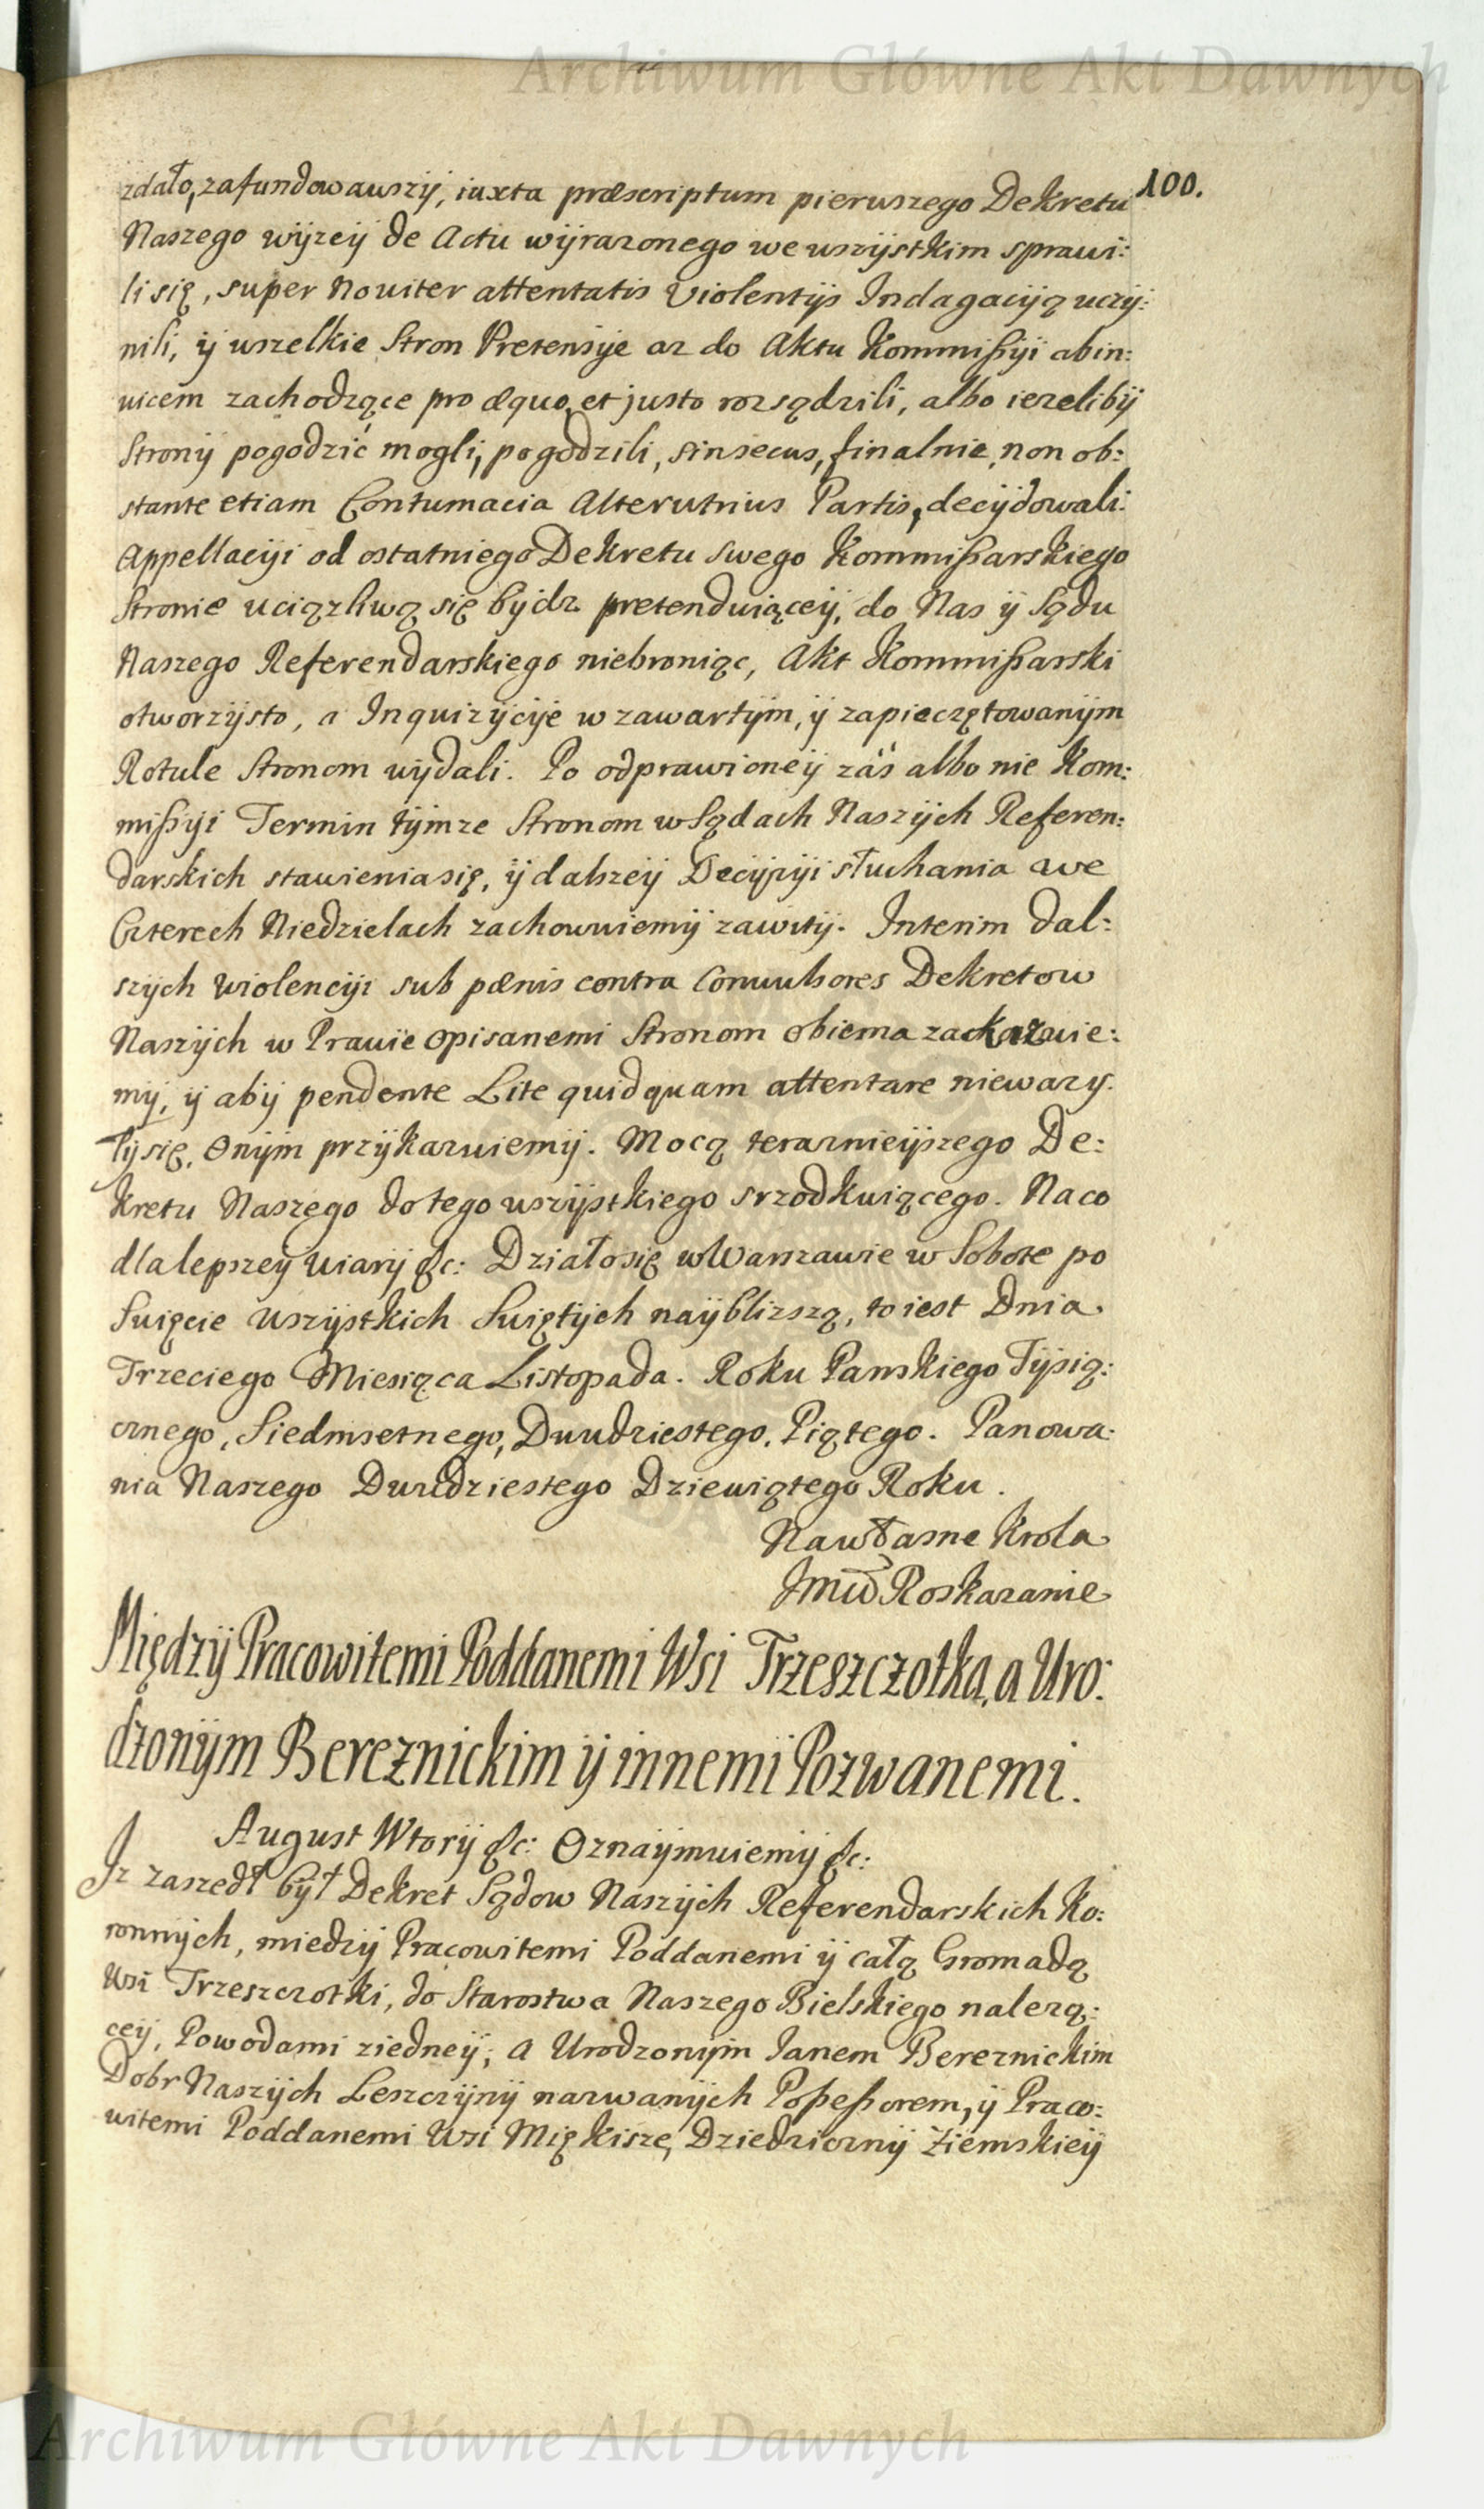 Archiwum Główne Akt Dawnych
100.
zdało, zafundowawszÿ, iuxta præscriptum pierwszego Dekretu
Naszego wÿzeÿ de Actu wÿrazonego we wszÿstkim sprawi:
li się, super noviter attentatis violentÿs Indagacÿą uczÿ:
nili, ÿ wszelkie Stron Pretensÿe az do Aktu Kommißÿi abin:
vicem zachodzące pro æquo et justo rozsądzili, albo iezelibÿ
Stronÿ pogodzić mogli, pogodzili, sinsecus, finalnie, non ob:
stante etiam Contumacia Alterutrius Partis, decÿdowali:
Appellacÿi od ostatniego Dekretu swego Kommißarskiego
Stronie uciązliwą się bÿdz pretenduiąceÿ, do Nas ÿ Sądu
Naszego Referendarskiego niebroniąc, Akt Kommißarski
otworzÿsto, a Inquizÿcÿe w zawartÿm, ÿ zapieczętowanÿm
Rotule Stronom wÿdali. Po odprawioneÿ zaś albo nie Kom:
mißÿi Termin tÿmze Stronom w Sądach Naszÿch Referen:
darskich stawienia się, ÿ dalszeÿ Decÿzÿi słuchania we
Czterech Niedzielach zachowuiemÿ zawitÿ. Interim dal:
szÿch violencÿi sub pœnis contra Convulsores Dekretow
Naszÿch w Prawie opisanemi Stronom obiema zakazuie:
mÿ, ÿ abÿ pendente Lite quidquam attentare niewazÿ:
łÿ się, Onÿm przÿkazuiemÿ. Mocą teraznieÿszego De:
kretu Naszego do tego wszÿstkiego srzodkuiącego. Na co
dla lepszeÿ wiarÿ &c: Działo się w Warszawie w Sobote po
Swięcie Wszÿstkich Swiętÿch naÿblizszą, to iest Dnia
Trzeciego Miesiąca Listopada. Roku Panskiego Tÿsią:
cznego, Siedmsetnego, Dwudziestego, Piątego. Panowa:
nia Naszego Dwudziestego Dziewiątego Roku.
Na własne Krola
Jmći Roskazanie
Międzÿ Pracowitemi Poddanemi Wsi Trzeszczotka, a Uro:
dzonÿm Bereznickim ÿ innemi Pozwanemi.
August Wtorÿ &c: Oznaÿmuiemÿ &c:
Iz zaszedł bÿł Dekret Sądow Naszÿch Referendarskich Ko:
ronnÿch, miedzÿ Pracowitemi Poddanemi ÿ całą Gromadą
Wsi Trzeszczotki, do Starostwa Naszego Bielskiego nalezą:
ceÿ, Powodami ziedneÿ, a Urodzonÿm Janem Bereznickim
Dobr Naszÿch Leszczÿnÿ nazwanÿch Poßeßorem, ÿ Praco:
witemi Poddanemi Wsi Miękisze, Dziedzicznÿ Ziemskieÿ
Archiwum Główne Akt Dawnych